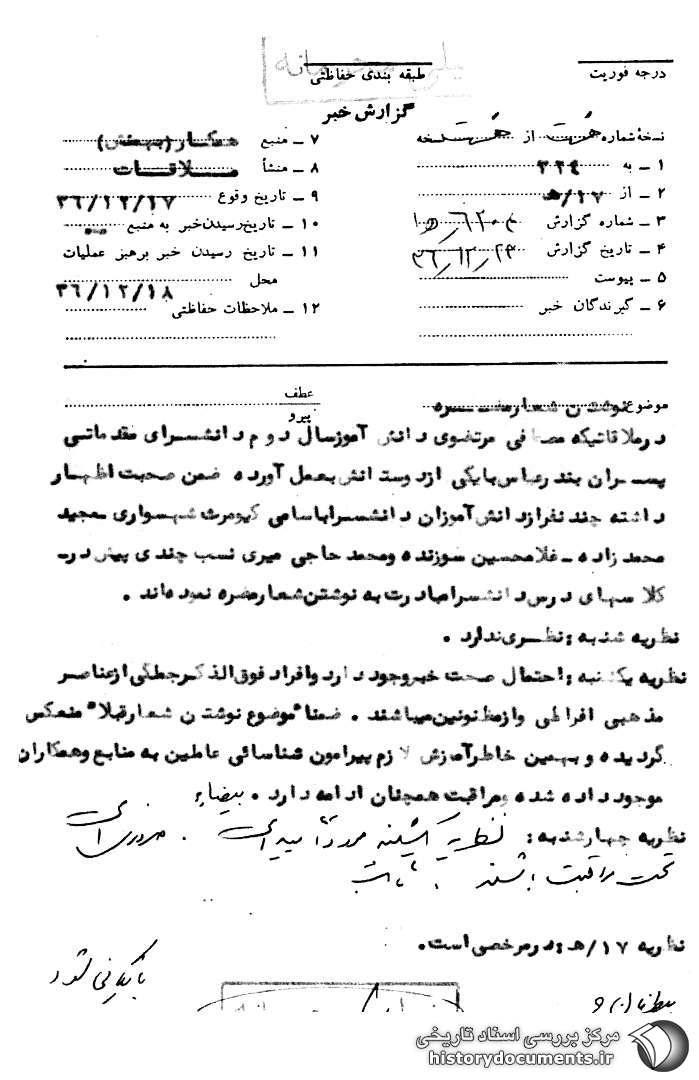 درجه فوریت
طبقه بندی حفاظتی
گزارش خبر
نسخهٔ شماره هفت از هفت نسخه
۱ ـ به ۳۳۴
۲ ـ از ۱۷/ﻫ
۳ ـ شماره گزارش
۴ ـ تاریخ گزارش ۳۶/۱۲/۲۳
۵ ـ پیوست
۶ ـ گیرندگان خبر
۷ ـ منبع همکار (بهمنش)
۸ ـ منشأ ملاقات
۹ ـ تاریخ وقوع ۳۶/۱۲/۱۷
۱۰ ـ تاریخ رسیدن خبر به منبع
۱۱ ـ تاریخ رسیدن خبر برهبر عملیات
محل ۳۶/۱۲/۱۸
۱۲ ـ ملاحظات حفاظتی
موضوع نوشتن شعار مضره
عطف
پیرو
درملاقاتیکه مصافی مرتضوی دانش آموزسال دوم دانشسرای مقدماتی
پسران بندرعباس بایکی ازدوستانش بعمل آورده ضمن صحبت اظهار
داشته چند نفرازدانش آموزان دانشسراباسامی کیومرث شهسواری ـ مجید
محمدزاده ـ غلامحسین سوزنده ومحمد حاجی میری نسب چندی پیش در
کلاسهای درس دانشسرامبادرت به نوشتن شعارمضره نموده‌اند .
نظریه شنبه : نظری ندارد .
نظریه یکشنبه : احتمال صحت خبروجود دارد وافراد فوق الذکرجملگی ازعناصر
مذهبی افراطی وازمظنونین میباشند . ضمنا" موضوع نوشتن شعارقبلا" منعکس
گردیده و بهمین خاطرآموزش لازم پیرامون شناسائی عاملین به منابع وهمکاران
موجود داده شده ومراقبت همچنان ادامه دارد . بیضاء
نظریه چهارشنبه : نظریه یکشنبه مورد تأیید است .
تحت مراقبت باشند .
نظریه ۱۷/ﻫ : درمرخصی است .
بایگانی شود
مرکز بررسی اسناد تاریخی
historydocuments.ir